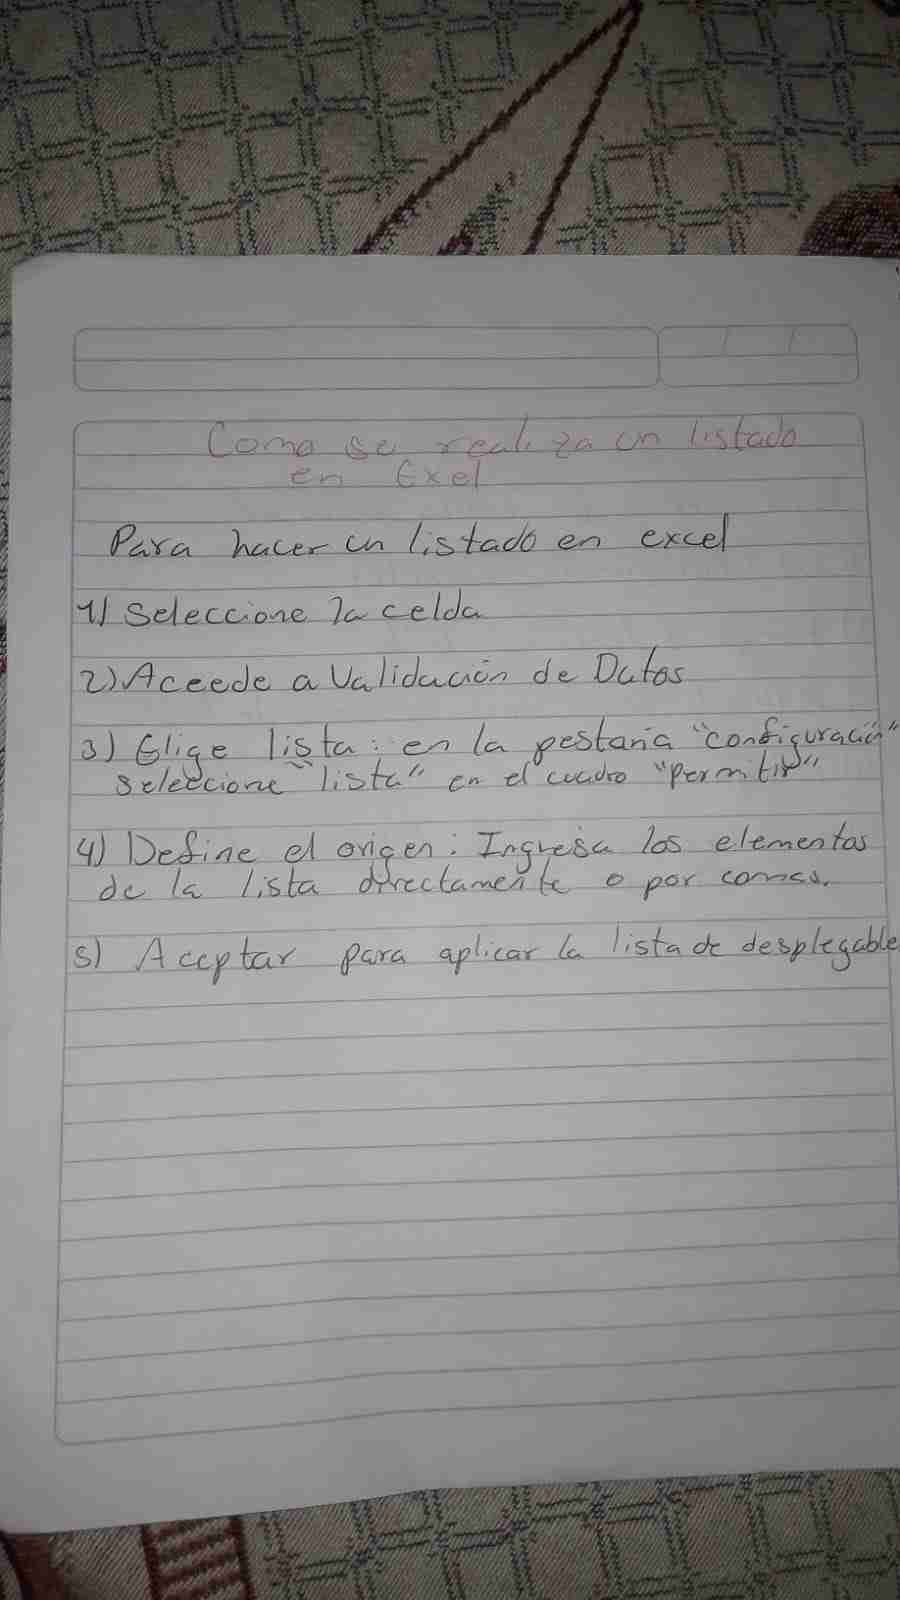 Como se realiza un listado
en Exel
Para hacer un listado en excel
1) Seleccione la celda
2) Aceede a Validación de Datos
3) Elige lista: en la pestaña "configuració"
seleccione "lista" en el cuadro "permitir"
4) Define el origen: Ingresa los elementos
de la lista directamente o por comas.
5) Aceptar para aplicar la lista de desplegable